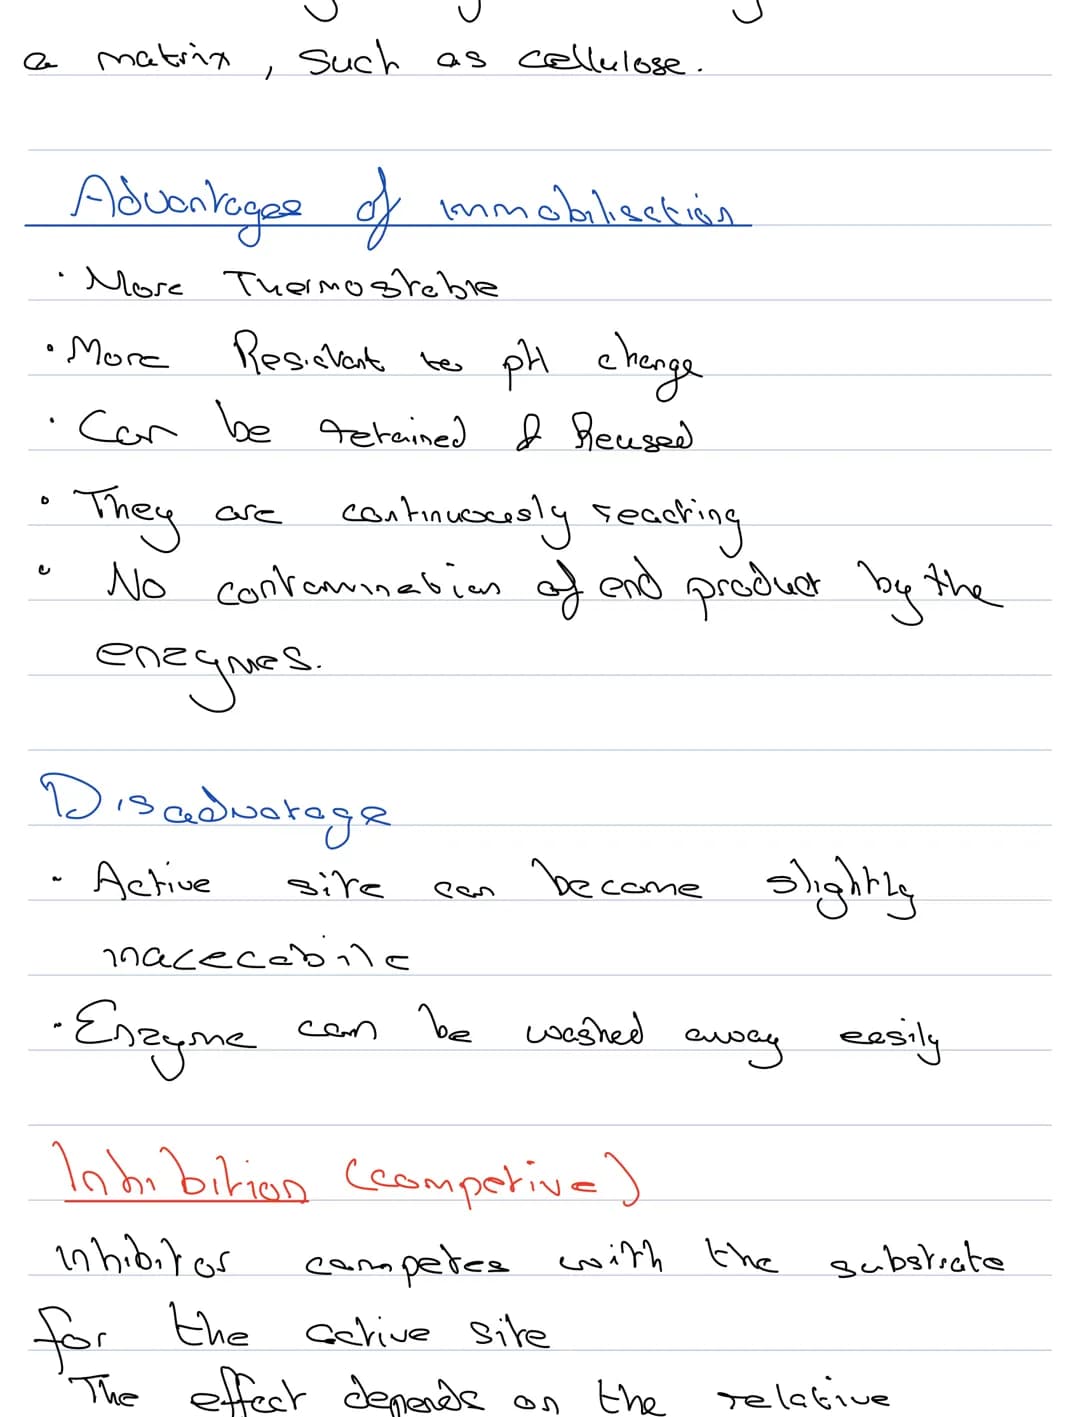 a matrix, such as cellulose.
Advantages of immobilisation
· More Thermostable
· More Resistant to pH change
· Can be retained & Reused
· They are continuously reacting
· No contamination of end product by the
enzymes.
Disadvatage
- Active site can become slightly
inaccecabile
· Enzyme can be washed away easily
Inhibition (competive)
Inhibitor competes with the substrate
for the active site
The effect depends on the relative